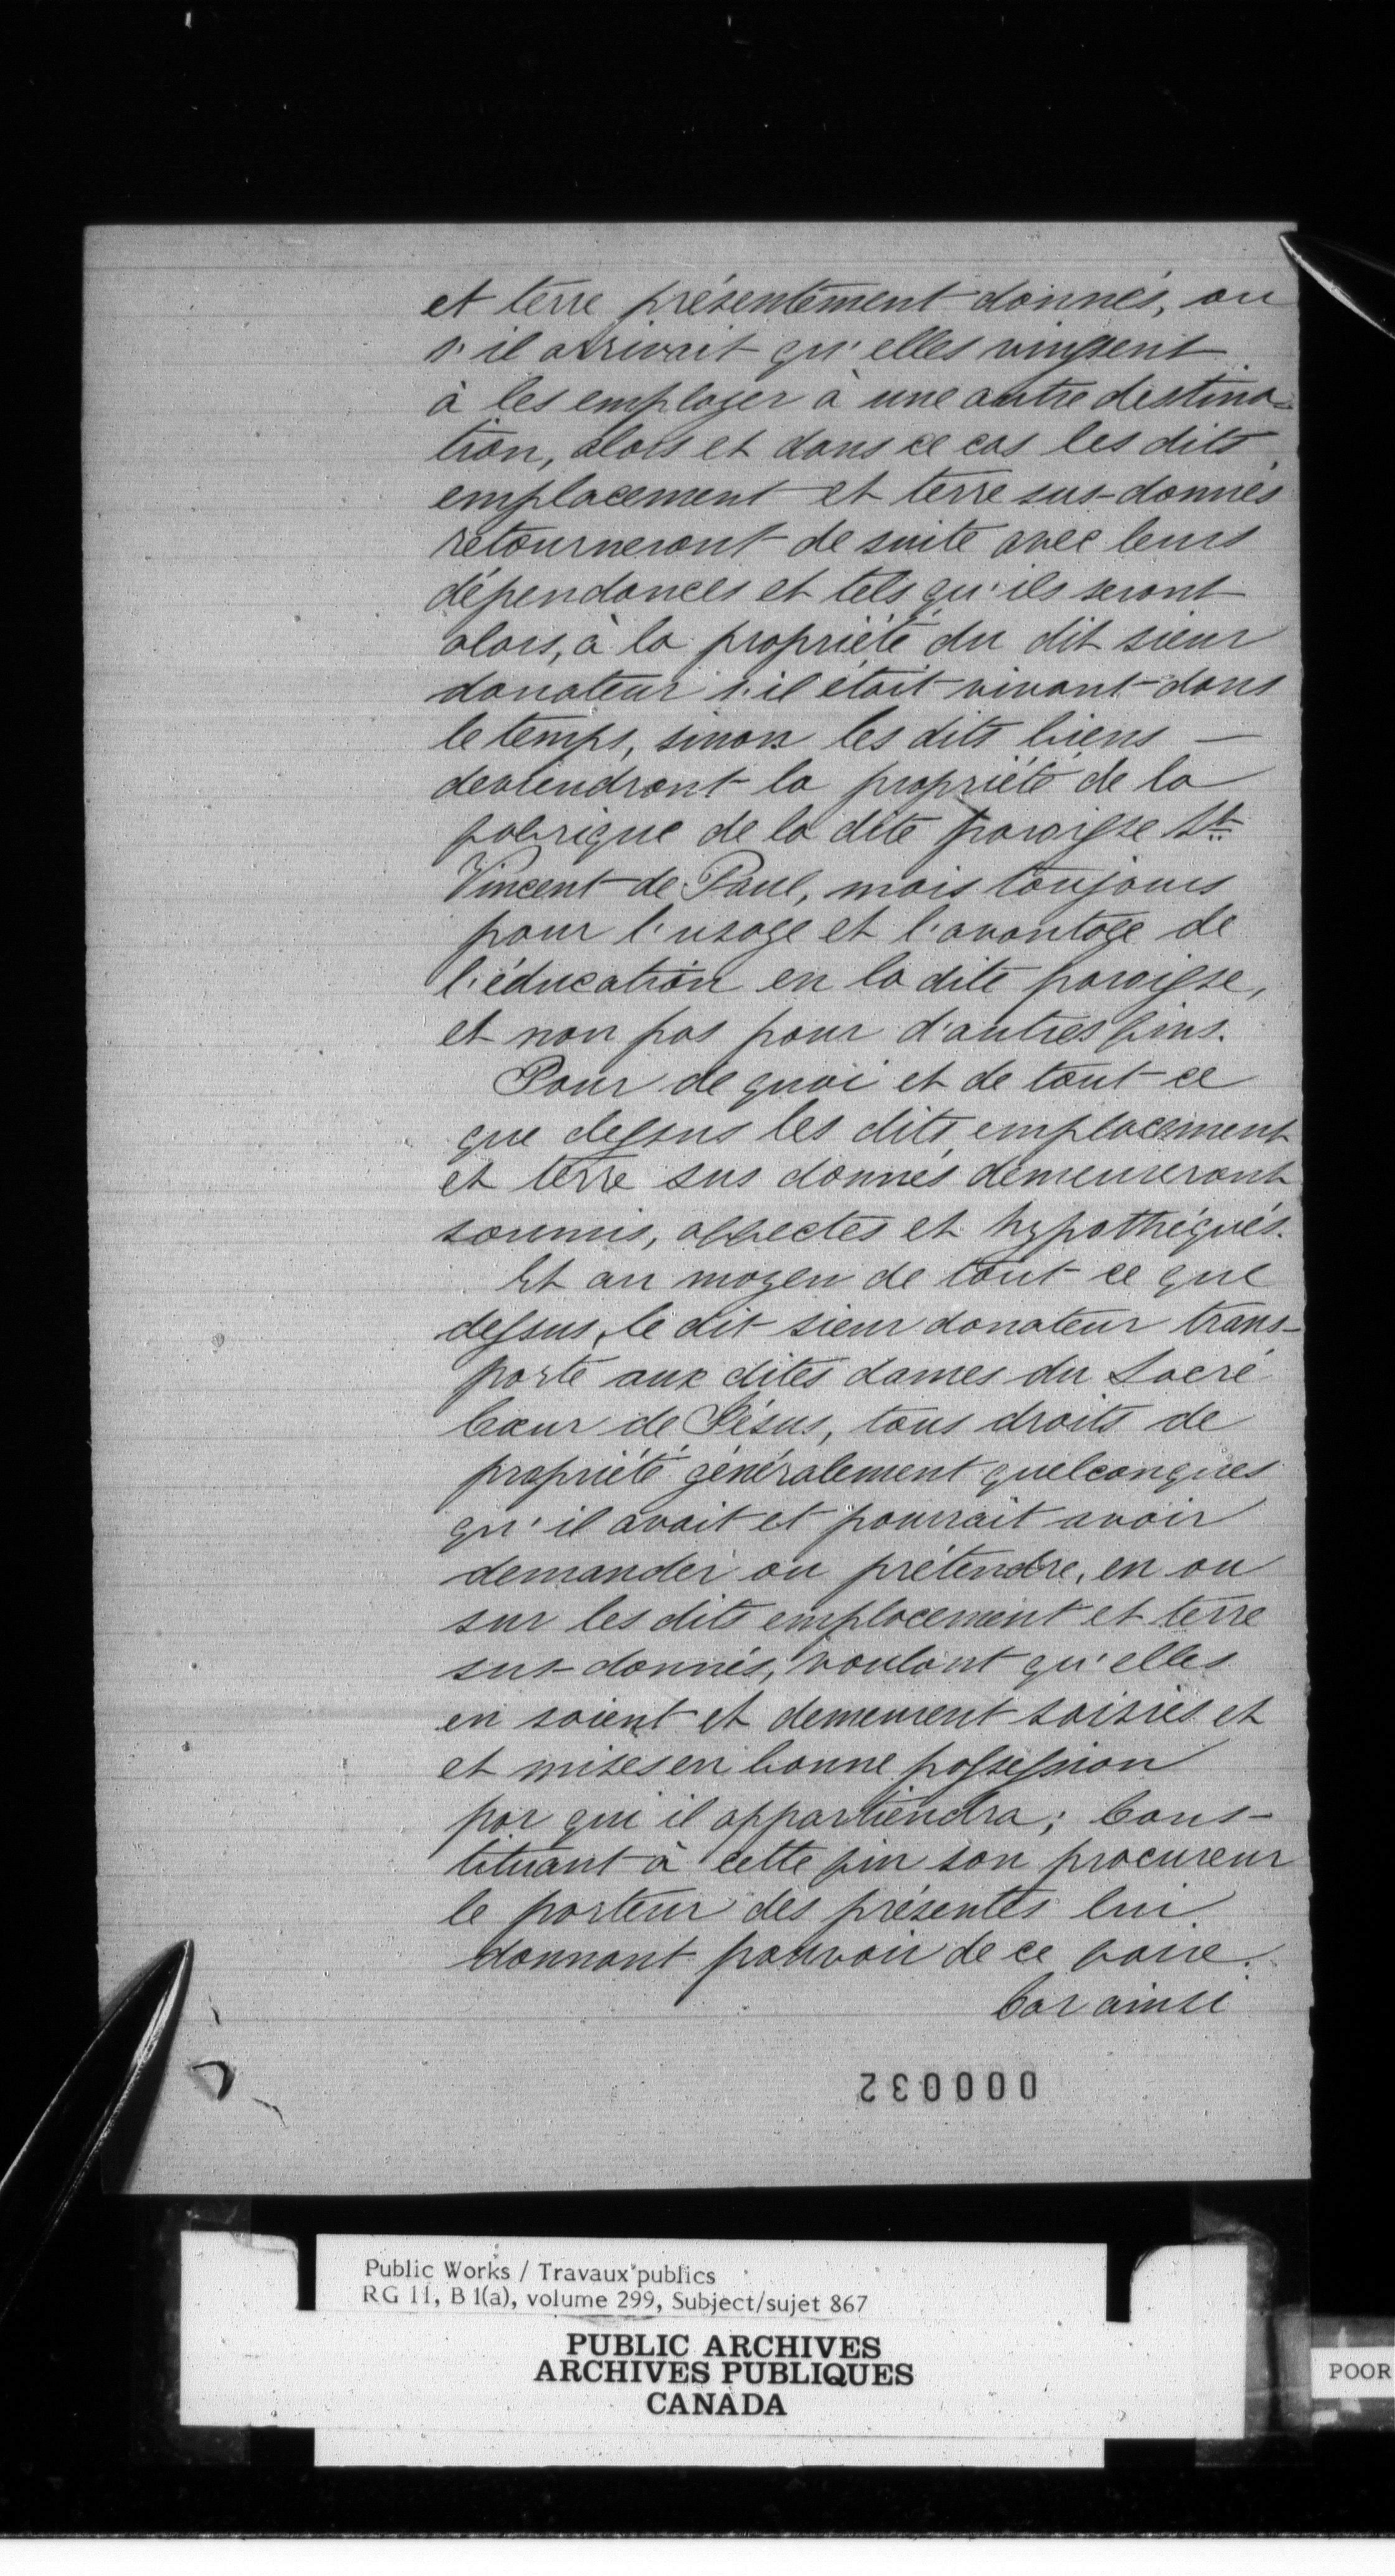 et terre présentement donnés, ou
s'il arrivait qu'elles vinssent
à les employer à une autre destina-
tion, alors et dans ce cas les dits
emplacement et terre sus-donnés
retourneront de suite avec leurs
dépendances et tels qu'ils seront
alors, à la propriété du dit sieur
donateur s'il était vivant dans
le temps, sinon les dits biens —
deviendront la propriété de la
fabrique de la dite paroisse St.
Vincent de Paul, mais toujours
pour l'usage et l'avantage de
l'éducation en la dite paroisse,
et non pas pour d'autres fins.
Pour de quoi et de tout ce
que dessus les dits emplacement
et terre sus donnés demeureront
soumis, affectés et hypothéqués.
Et au moyen de tout ce que
dessus, le dit sieur donateur trans-
porte aux dites dames du Sacré
Cœur de Jésus, tous droits de
propriété généralement quelconques
qu'il avait et pourrait avoir
demander ou prétendre, en ou
sur les dits emplacement et terre
sus-donnés, voulant qu'elles
en soient et demeurent saisies et
et mises en bonne possession
par qui il appartiendra; Cons-
tituant à cette fin son procureur
le porteur des présentes lui
donnant pouvoir de ce faire.
Car ainsi
000032
Public Works / Travaux publics
RG 11, B 1(a), volume 299, Subject/sujet 867
PUBLIC ARCHIVES
ARCHIVES PUBLIQUES
CANADA
POOR